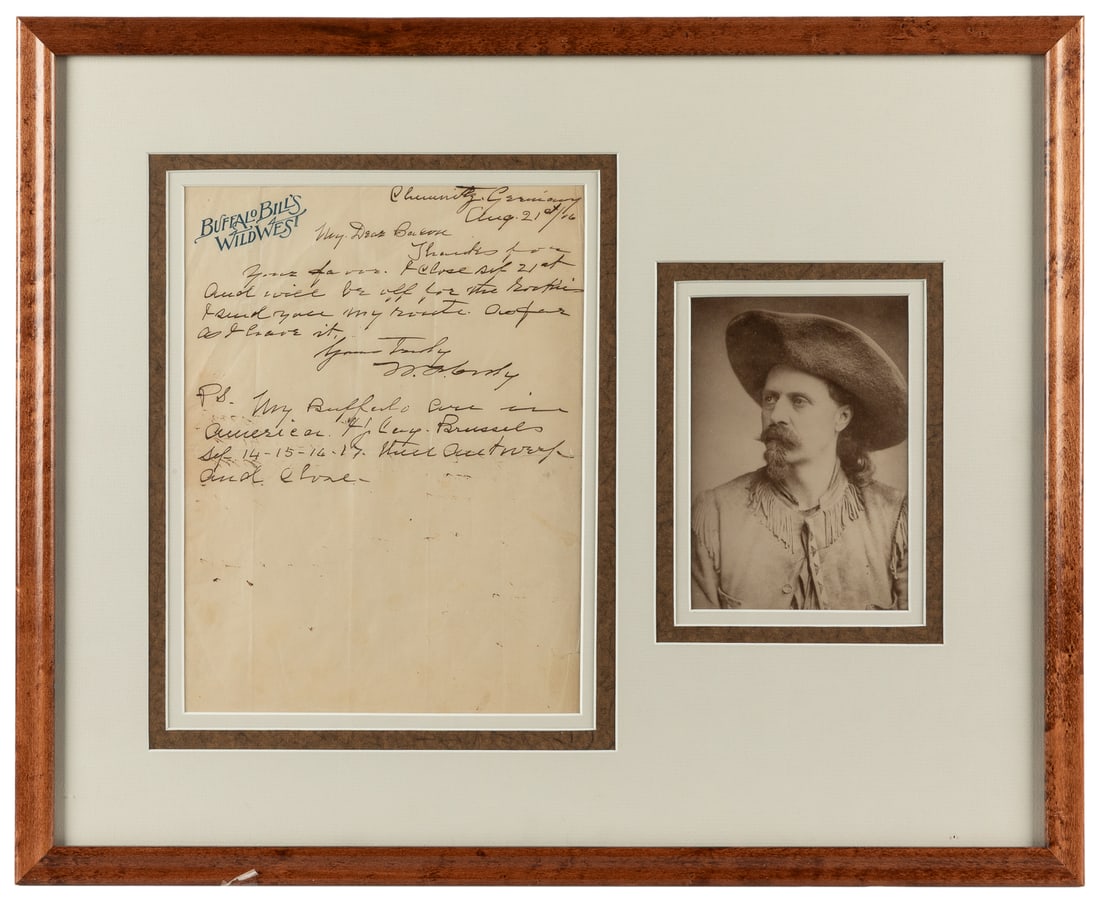 BUFFALO BILL'S
WILD WEST
Chemnitz. Germany
Aug. 21st/06
My Dear Bacon
Thanks for
Your favor. I close Sep 21st
And will be off for the Rockies
I send you my route. As far
as I have it.
Yours Truly
W. F. Cody
P.S. My Buffalo are in
America. Brussels
Sep. 14-15-16-17. then Antwerp
And. Close-